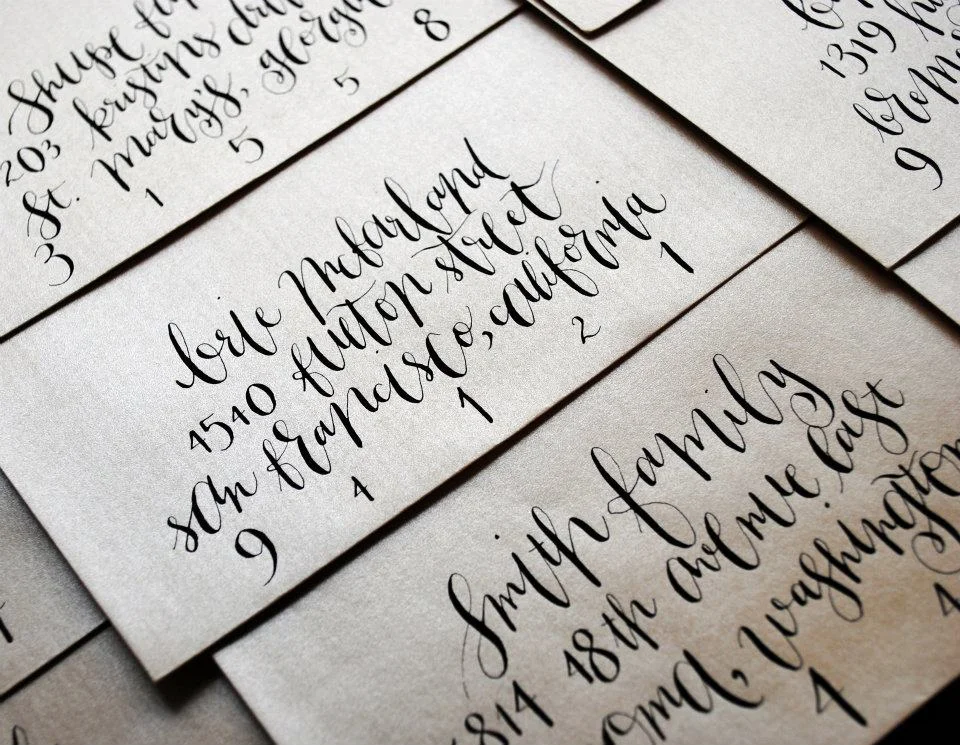 Shupe fa
203 krustyns dri
St. Mary's, georgia
3 1 5 5 8
brie mcfarland
4540 fulton street
san francisco, california
9 4 1 2 1
1319
brem
9
Smith family
814 48th avenue east
oma, washington
4 4